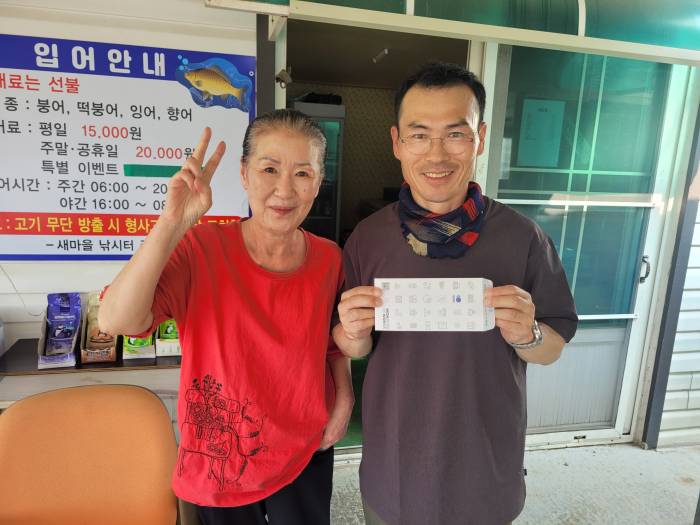 입어안내
재료는 선불
종 : 붕어, 떡붕어, 잉어, 향어
료 : 평일 15,000원
주말·공휴일 20,000원
특별 이벤트
어시간 : 주간 06:00 ~ 20
야간 16:00 ~ 08
: 고기 무단 방출 시 형사고
- 새마을 낚시터